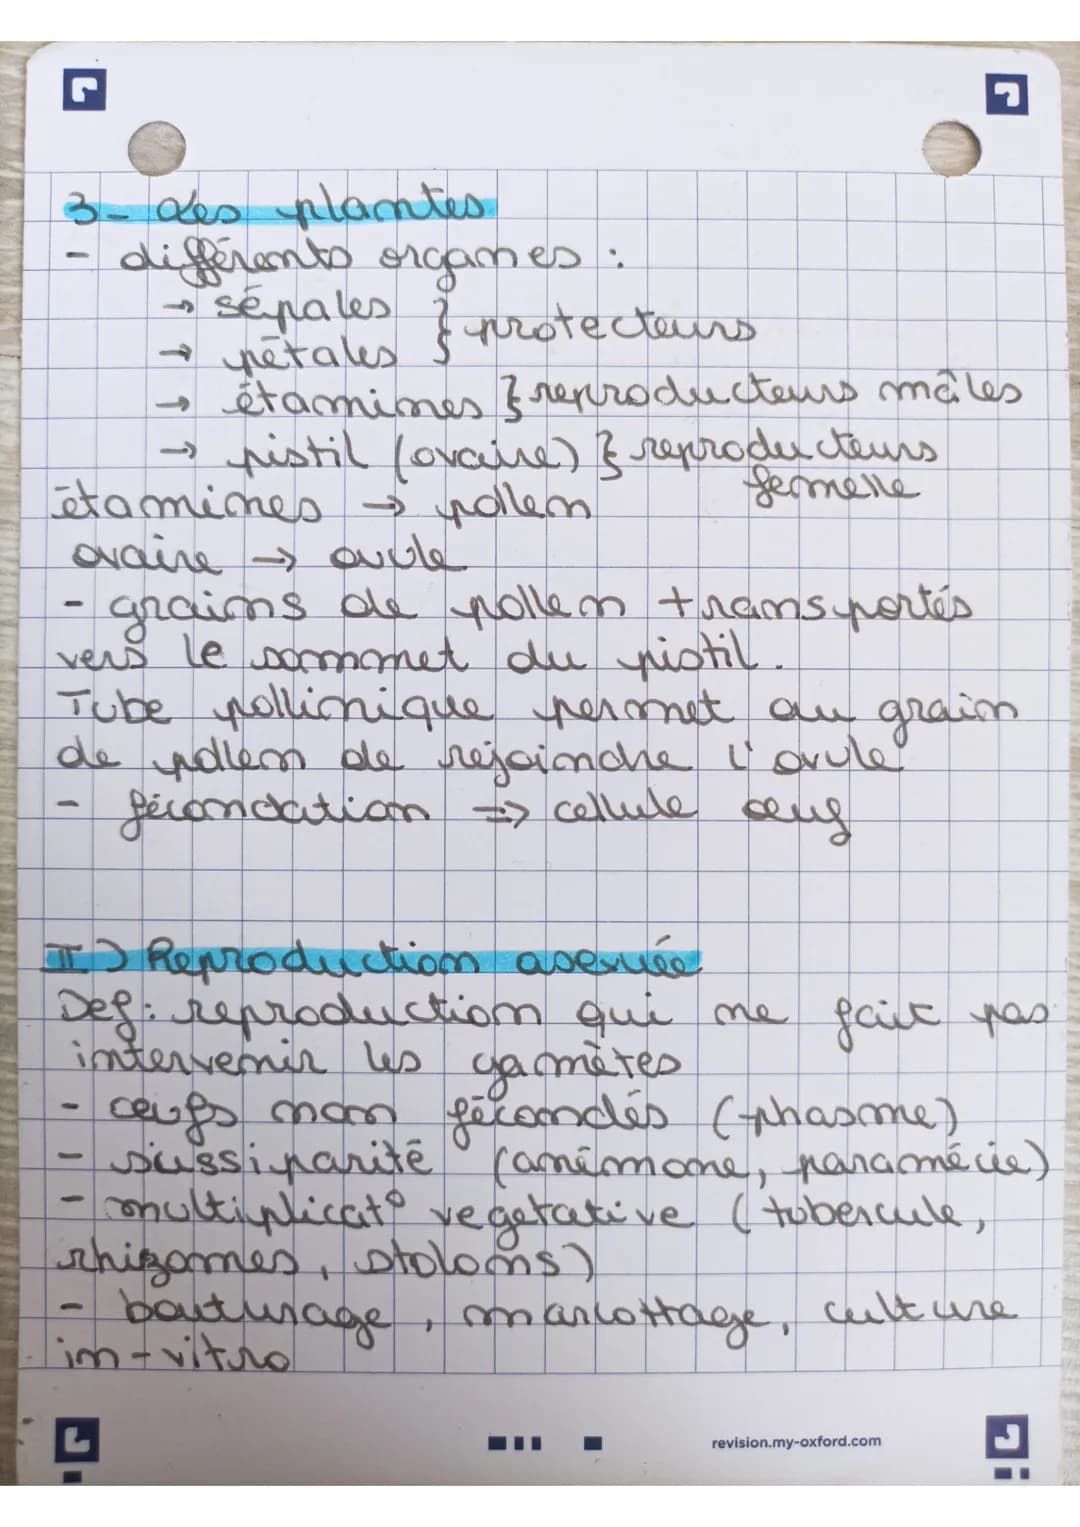 3- Les plantes
- différents organes :
→ sépales
→ pétales } protecteurs
→ étamines } reproducteurs mâles
→ pistil (ovaire) } reproducteurs
femelle
étamines → pollen
ovaire → ovule
- grains de pollen transportés
vers le sommet du pistil.
Tube pollinique permet au grain
de pollen de rejoindre l'ovule
- fécondation => cellule œuf
II) Reproduction asexuée
Def: reproduction qui ne fait pas
intervenir les gamètes
- œufs non fécondés (phasme)
- sissiparité (anémone, paramécie)
- multiplicat° vegetative (tubercule,
rhizomes, stolons)
- bouturage, marcottage, culture
in-vitro
revision.my-oxford.com